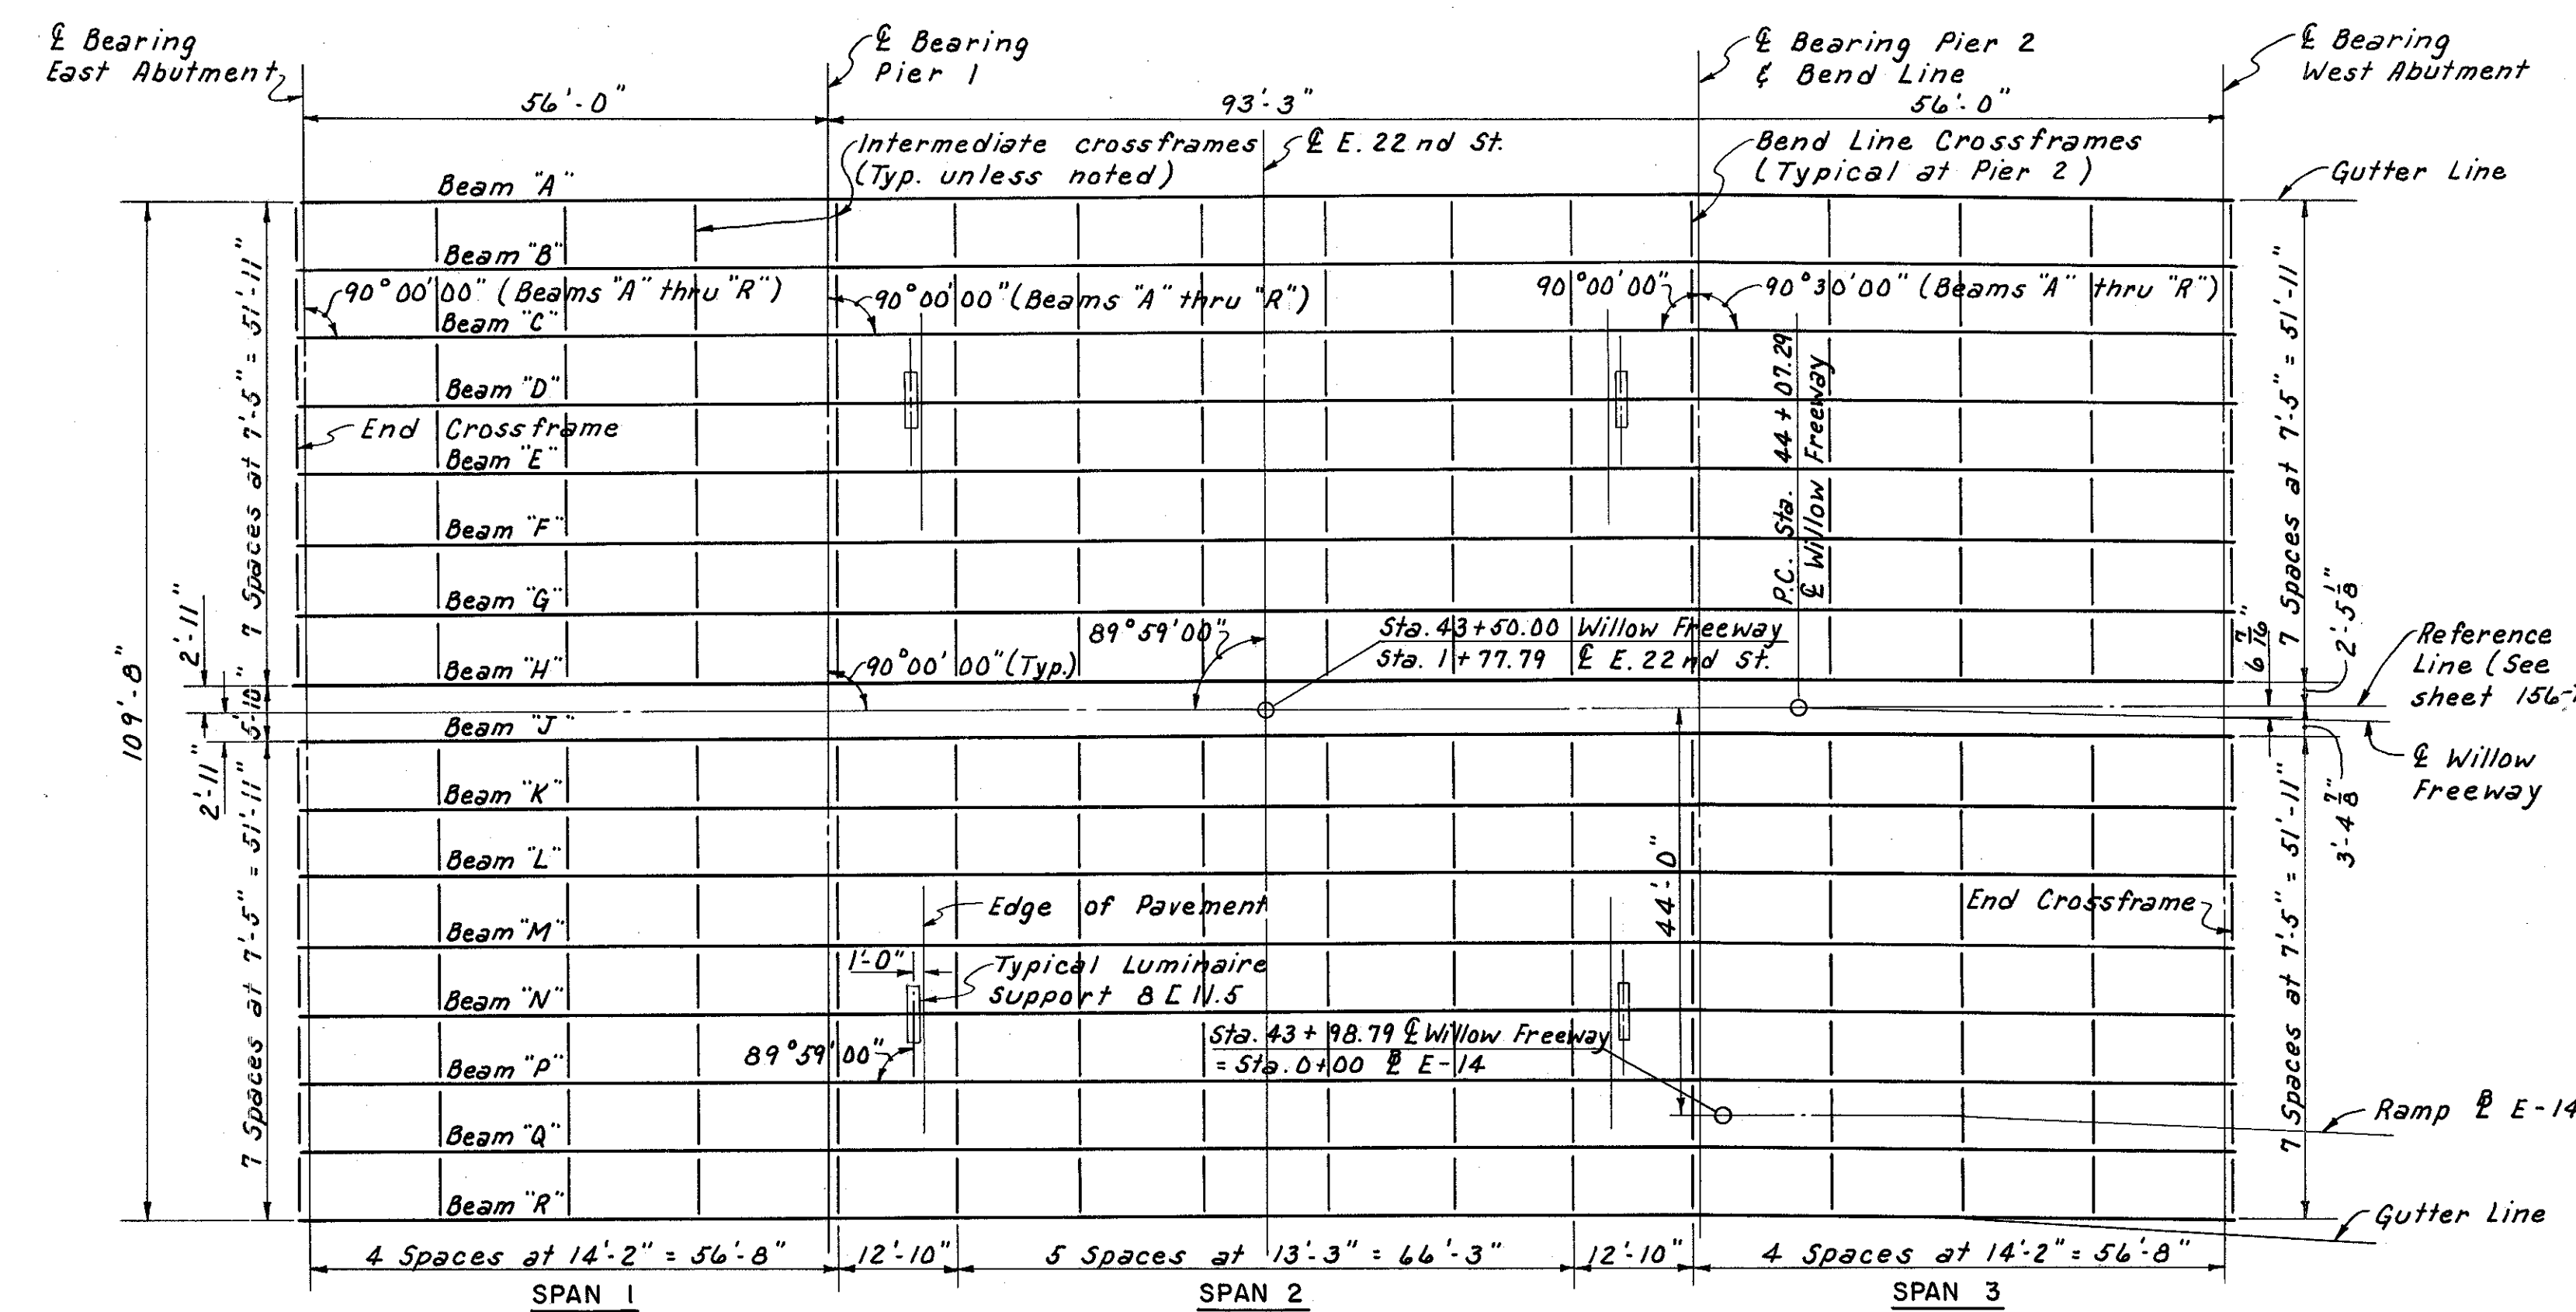 ℄ Bearing
East Abutment
℄ Bearing
Pier 1
℄ Bearing Pier 2
& Bend Line
℄ Bearing
West Abutment
56'-0"
93'-3"
56'-0"
Intermediate crossframes
(Typ. unless noted)
℄ E. 22nd St.
Bend Line Crossframes
(Typical at Pier 2)
Gutter Line
Beam "A"
Beam "B"
90°00'00" (Beams "A" thru "R")
90°00'00" (Beams "A" thru "R")
90°00'00"
90°30'00" (Beams "A" thru "R")
Beam "C"
Beam "D"
End Crossframe
Beam "E"
Beam "F"
Beam "G"
Beam "H"
Beam "J"
Beam "K"
Beam "L"
Beam "M"
Beam "N"
Beam "P"
Beam "Q"
Beam "R"
109'-8"
7 Spaces at 7'-5" = 51'-11"
2'-11"
5'-10"
2'-11"
7 Spaces at 7'-5" = 51'-11"
P.C. Sta. 44+07.29
℄ Willow Freeway
89°59'00"
90°00'00" (Typ.)
Sta. 43+50.00 Willow Freeway
Sta. 1+77.79 ℄ E. 22nd St.
7 Spaces at 7'-5" = 51'-11"
2'-5 1/8"
6 7/16"
3'-4 7/8"
7 Spaces at 7'-5" = 51'-11"
Reference
Line (See
sheet 156-
℄ Willow
Freeway
44'-0"
Edge of Pavement
End Crossframe
1'-0"
Typical Luminaire
Support 8 [ 11.5
89°59'00"
Sta. 43+98.79 ℄ Willow Freeway
= Sta. 0+00 ⅊ E-14
Ramp ⅊ E-14
Gutter Line
4 Spaces at 14'-2" = 56'-8"
12'-10"
5 Spaces at 13'-3" = 66'-3"
12'-10"
4 Spaces at 14'-2" = 56'-8"
SPAN 1
SPAN 2
SPAN 3